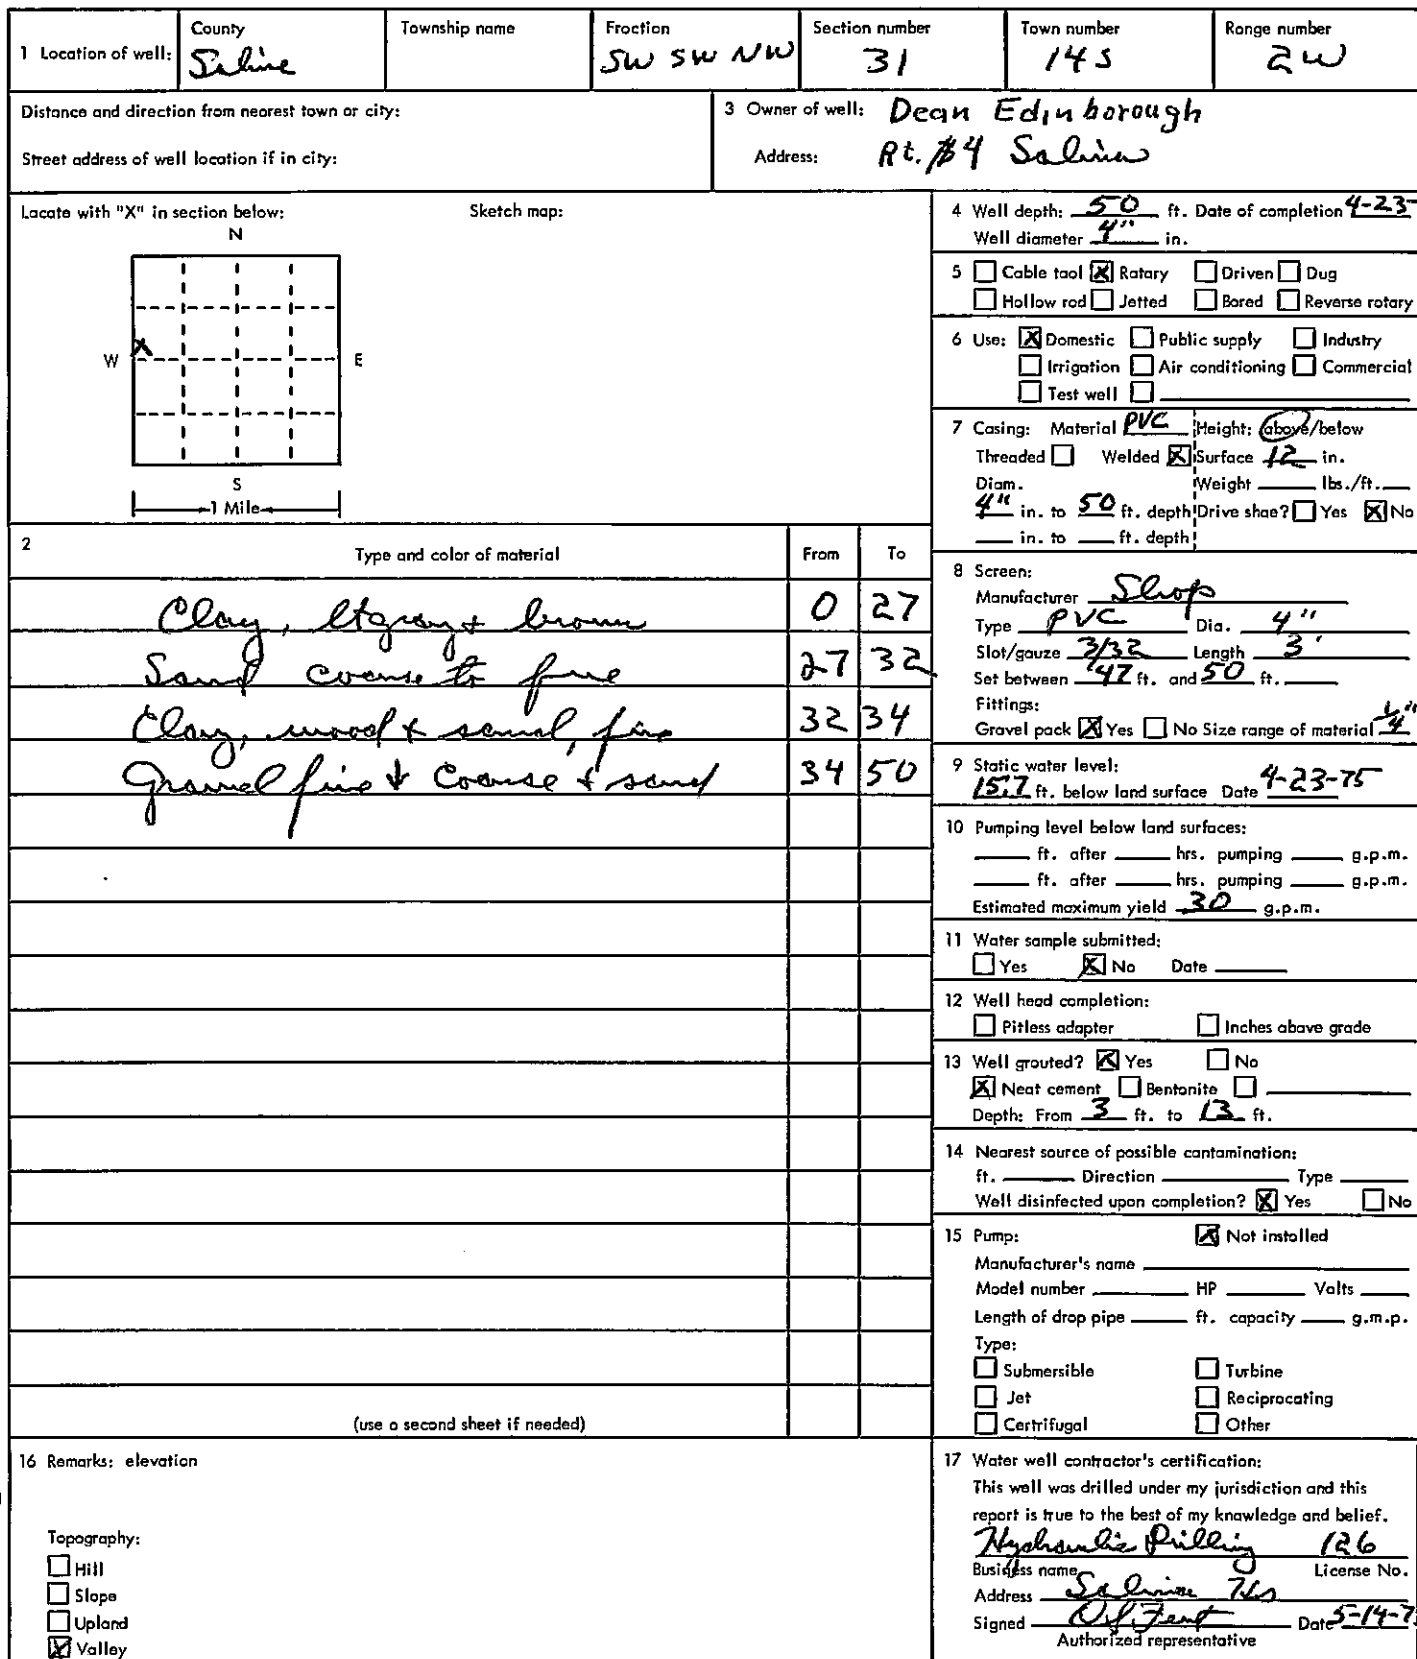 1 Location of well: County Saline Township name Fraction SW SW NW Section number 31 Town number 14S Range number 2W
Distance and direction from nearest town or city:
Street address of well location if in city:
3 Owner of well: Dean Edinborough
Address: Rt. #4 Salina
Locate with "X" in section below: Sketch map:
N
X
W E
S
1 Mile
2 Type and color of material From To
Clay, lt gray + brown 0 27
Sand coarse to fine 27 32
Clay, wood + sand, fine 32 34
Gravel fine + coarse + sand 34 50
(use a second sheet if needed)
4 Well depth: 50 ft. Date of completion 4-23-
Well diameter 4" in.
5 ☐ Cable tool ☒ Rotary ☐ Driven ☐ Dug
☐ Hollow rod ☐ Jetted ☐ Bored ☐ Reverse rotary
6 Use: ☒ Domestic ☐ Public supply ☐ Industry
☐ Irrigation ☐ Air conditioning ☐ Commercial
☐ Test well ☐
7 Casing: Material PVC Height: above/below
Threaded ☐ Welded ☒ Surface 12 in.
Diam. Weight ____ lbs./ft.
4" in. to 50 ft. depth Drive shoe? ☐ Yes ☒ No
____ in. to ____ ft. depth
8 Screen:
Manufacturer Shop
Type PVC Dia. 4"
Slot/gauze 3/32 Length 3'
Set between 47 ft. and 50 ft.
Fittings:
Gravel pack ☒ Yes ☐ No Size range of material 1/4"
9 Static water level:
15.7 ft. below land surface Date 4-23-75
10 Pumping level below land surfaces:
____ ft. after ____ hrs. pumping ____ g.p.m.
____ ft. after ____ hrs. pumping ____ g.p.m.
Estimated maximum yield 30 g.p.m.
11 Water sample submitted:
☐ Yes ☒ No Date
12 Well head completion:
☐ Pitless adapter ☐ Inches above grade
13 Well grouted? ☒ Yes ☐ No
☒ Neat cement ☐ Bentonite ☐
Depth: From 3 ft. to 13 ft.
14 Nearest source of possible contamination:
ft. ____ Direction ____ Type ____
Well disinfected upon completion? ☒ Yes ☐ No
15 Pump: ☒ Not installed
Manufacturer's name
Model number ____ HP ____ Volts ____
Length of drop pipe ____ ft. capacity ____ g.m.p.
Type:
☐ Submersible ☐ Turbine
☐ Jet ☐ Reciprocating
☐ Certrifugal ☐ Other
16 Remarks: elevation
Topography:
☐ Hill
☐ Slope
☐ Upland
☒ Valley
17 Water well contractor's certification:
This well was drilled under my jurisdiction and this
report is true to the best of my knowledge and belief.
Hydraulic Drilling 126
Business name License No.
Address Salina Ks
Signed Date 5-14-7
Authorized representative